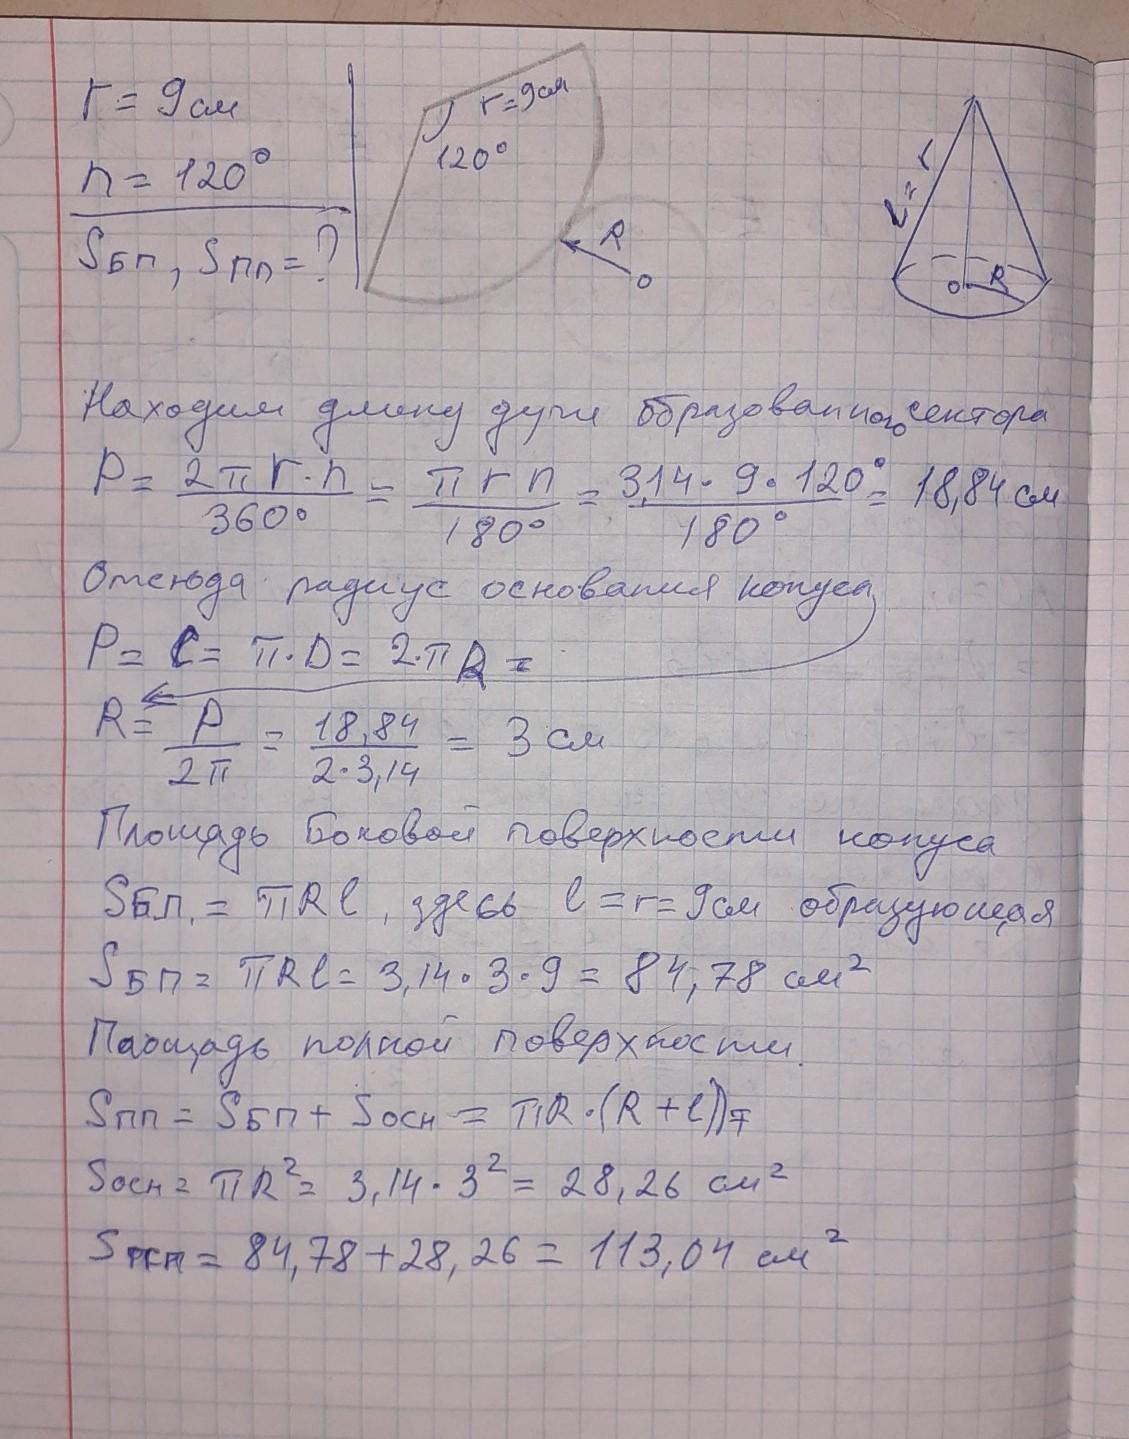 r = 9см
n = 120°
Sбп, Sпп = ?
r=9см
120°
R
O
l = r
O R
Находим длину дуги образованного сектора
P = 2πr·n / 360° = πrn / 180° = 3,14·9·120° / 180° = 18,84 см
Отсюда радиус основания конуса
P = C = π·D = 2·πR =
R = P / 2π = 18,84 / 2·3,14 = 3 см
Площадь боковой поверхности конуса
Sб.п. = πRl, здесь l = r = 9см образующая
Sбп = πRl = 3,14·3·9 = 84,78 см²
Площадь полной поверхности.
Sпп = Sбп + Sосн = πR·(R + l)
Sосн = πR² = 3,14·3² = 28,26 см²
Sпп = 84,78 + 28,26 = 113,04 см²